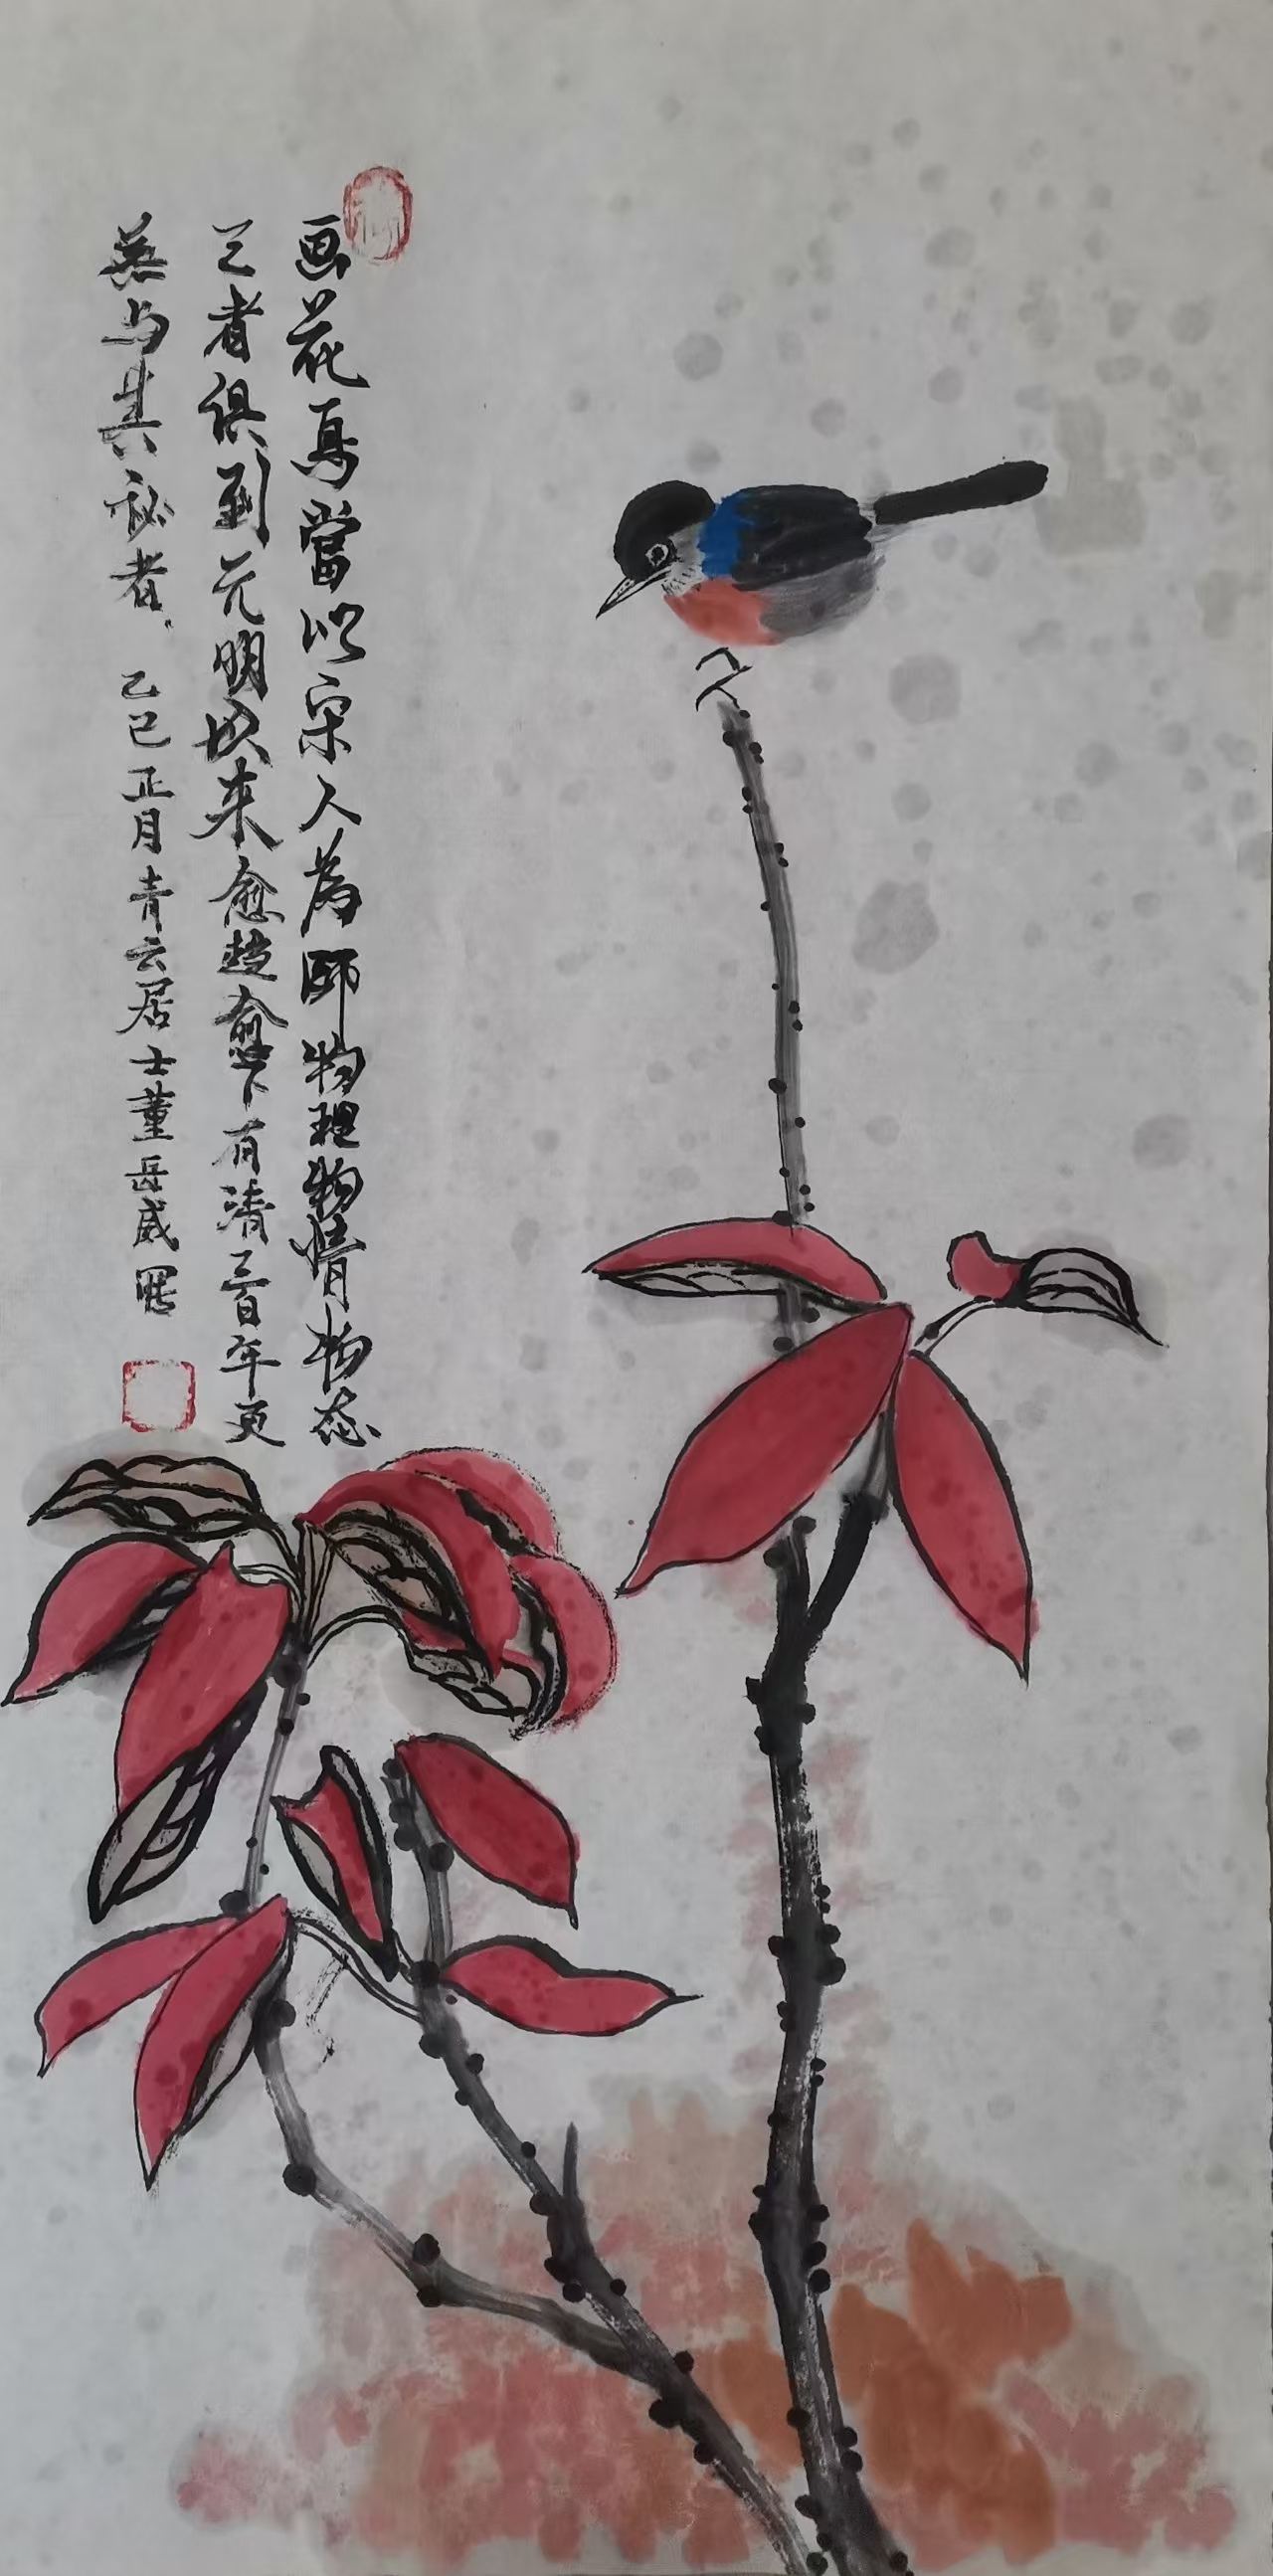 画花鳥當以宋人為師物理物情物态
三者俱到元明以来愈趋愈下有清三百年更
無与其秘者
乙巳正月青云居士董岳威